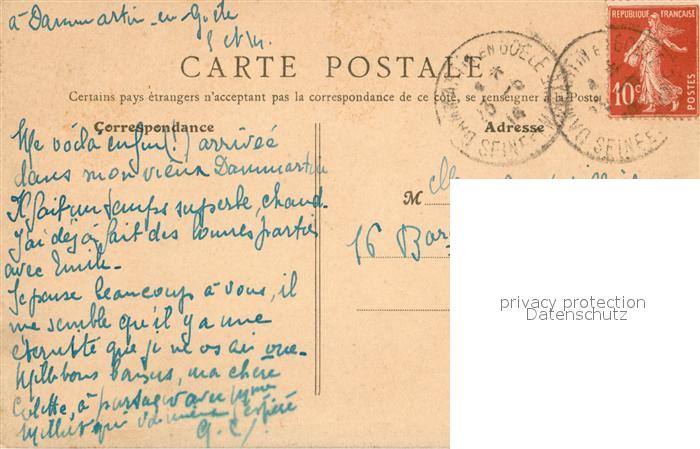 à Dammartin-en-Goële
S et M.
CARTE POSTALE
Certains pays étrangers n'acceptant pas la correspondance de ce côté, se renseigner à la Poste
Correspondance
Adresse
REPUBLIQUE FRANÇAISE
10c
POSTES
DAMMARTIN EN GOËLE
SEINE ET
Me voilà enfin (!) arrivée
dans mon vieux Dammartin
Il fait un temps superbe, chaud.
J'ai déjà fait des bonnes parties
avec Emile.
Je pense beaucoup à vous, il
me semble qu'il y a une
éternité que je ne vs ai vue.
Mille bons baisers, ma chère
Colette, à partager avec Mme
Millet qui
G. C.
M
16
privacy protection
Datenschutz